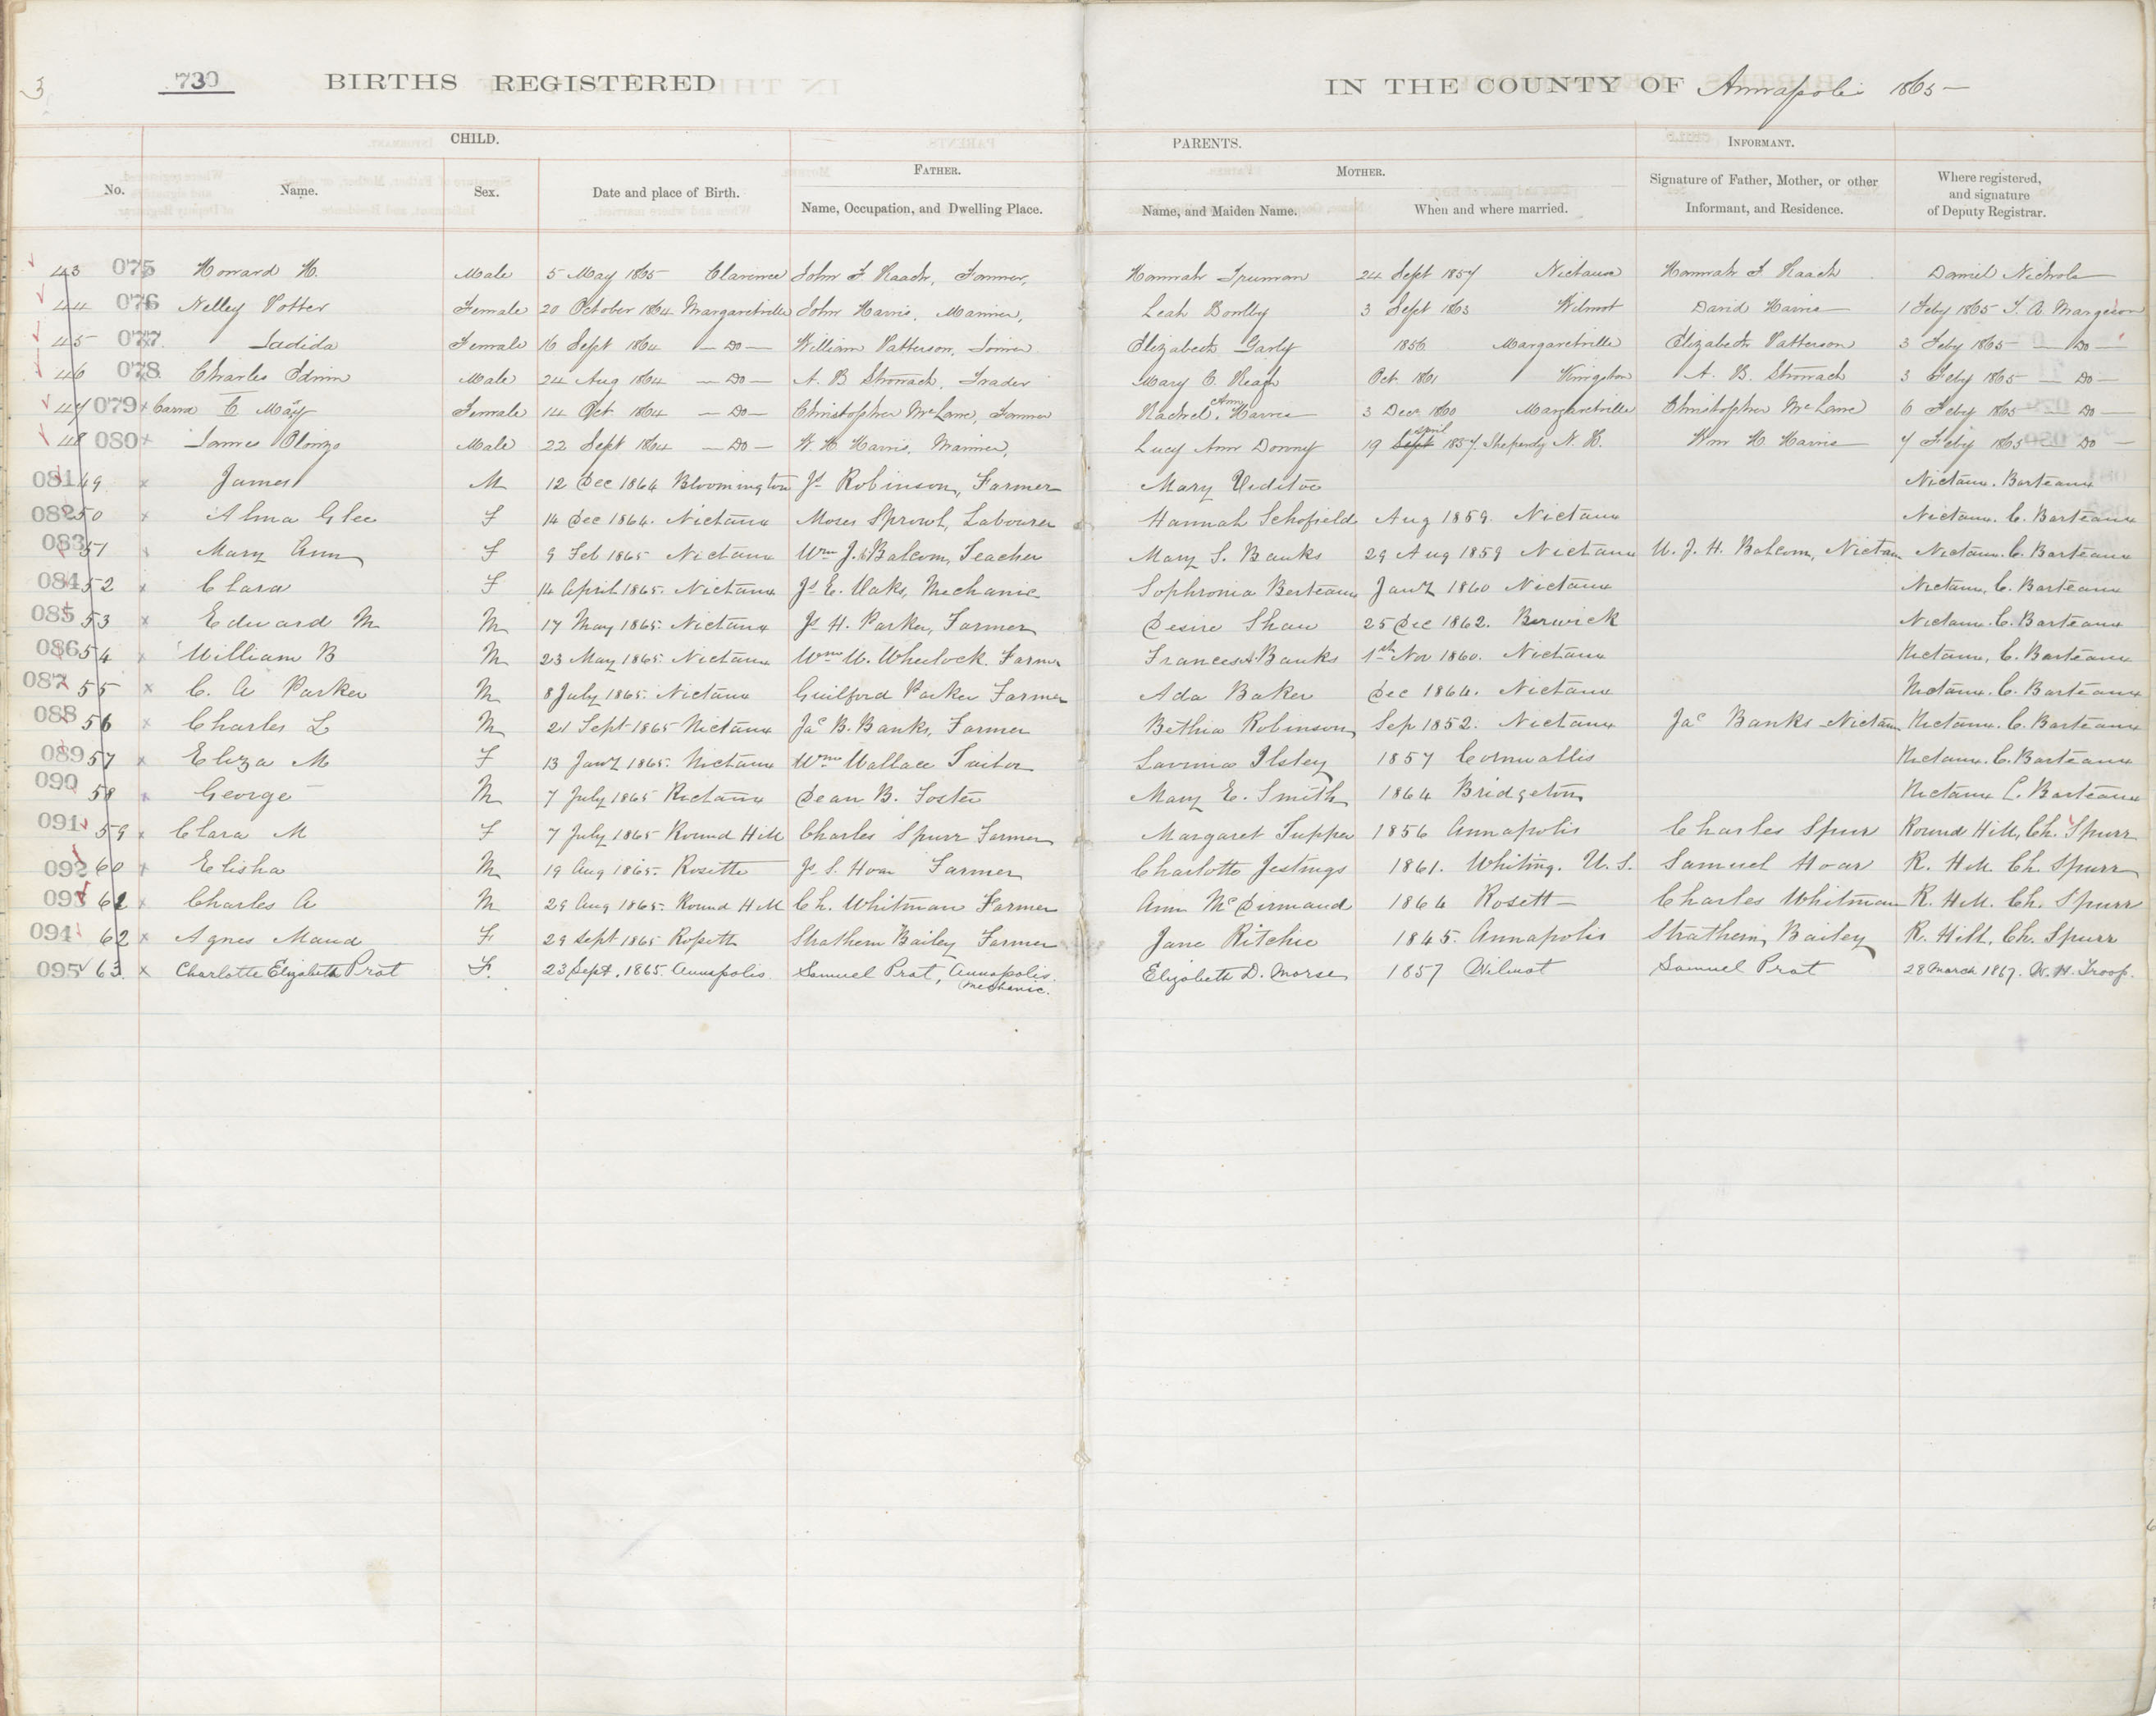 3 730 BIRTHS REGISTERED IN THE COUNTY OF Annapolis 1865 —
CHILD. PARENTS. INFORMANT.
FATHER. MOTHER.
No. Name. Sex. Date and place of Birth. Name, Occupation, and Dwelling Place. Name, and Maiden Name. When and where married. Signature of Father, Mother, or other Informant, and Residence. Where registered, and signature of Deputy Registrar.
43 075 Howard H. Male 5 May 1865 Clarence John F. Raach, Farmer, Hannah Truman 24 Sept 1857 Nictaux Hannah F Raach Daniel Nichols
44 076 Nelley Potter Female 20 October 1864 Margaretville John Harris, Mariner, Leah Bowlby 3 Sept 1863 Wilmot David Harris 1 Feby 1865 T. A. Margeson
45 077 Sadida Female 16 Sept 1864 — Do — William Patterson, Elizabeth Early 1856 Margaretville Elizabeth Patterson 3 Feby 1865 — Do —
46 078 Charles Edwin Male 24 Aug 1864 — Do — A. B Stronach, Trader Mary C. Reagh Oct 1861 Kingston A. B. Stronach 3 Feby 1865 — Do —
47 079 x C May Female 14 Oct 1864 — Do — Christopher McLane, Farmer Rachel Ann Harris 3 Dec 1860 Margaretville Christopher McLane 6 Feby 1865 — Do —
48 080 x James Alonzo Male 22 Sept 1864 — Do — W. H. Harris, Mariner, Lucy Ann Downy 19 Sept April 1857. Shepardy N. H. Wm H. Harris 7 Feby 1865 — Do —
081 49 x James M 12 Dec 1864 Bloomington Js Robinson, Farmer Mary Viditoe Nictaux. Barteaux
082 50 x Alma G lee F 14 Dec 1864. Nictaux Moses Sprowl, Labourer Hannah Schofield Aug 1859 Nictaux Nictaux. C. Barteaux
083 51 x Mary Ann F 9 Feb 1865 Nictaux Wm J. H. Balcom, Teacher Mary S. Banks 29 Aug 1859 Nictaux W. J. H. Balcom, Nictaux Nictaux. C. Barteaux
084 52 x Clara F 14 April 1865. Nictaux Js E. Oaks, Mechanic Sophronia Berteaux Jany 1860 Nictaux Nictaux, C. Barteaux
085 53 x Edward M M 17 May 1865. Nictaux Js H. Parker, Farmer Desire Shaw 25 Dec 1862. Berwick Nictaux. C. Barteaux
086 54 x William B M 23 May 1865. Nictaux Wm W. Wheelock. Farmer Frances A Banks 1st Nov 1860. Nictaux Nictaux, C. Barteaux
087 55 x C. A Parker M 8 July 1865. Nictaux Guilford Parker Farmer Ada Baker Dec 1864. Nictaux Nictaux. C. Barteaux
088 56 x Charles L M 21 Sept 1865 Nictaux Jac B. Banks, Farmer Bethia Robinson Sep 1852. Nictaux Jac Banks Nictaux Nictaux. C. Barteaux
089 57 x Eliza M F 13 Jany 1865. Nictaux Wm Wallace Tailor Lavinia Ilsley 1857 Cornwallis Nictaux. C. Barteaux
090 58 x George M 7 July 1865 Nictaux Dean B. Foster Mary E. Smith 1864 Bridgeton Nictaux C. Barteaux
091 59 x Clara M F 7 July 1865 Round Hill Charles Spurr Farmer Margaret Tupper 1856 Annapolis Charles Spurr Round Hill, Ch. Spurr
092 60 x Elisha M 19 Aug 1865. Rosette Js. S. Hoar Farmer Charlotte Jestings 1861. Whiting. U. S. Samuel Hoar R. Hill. Ch. Spurr
093 61 x Charles A M 29 Aug 1865. Round Hill Ch. Whitman Farmer Ann McDirmaud 1864 Rosett — Charles Whitman R. Hill. Ch. Spurr
094 62 x Agnes Maud F 29 Sept 1865 Rosette Strathern Bailey Farmer Jane Ritchie 1845. Annapolis Strathern Bailey R. Hill, Ch. Spurr
095 63. x Charlotte Elizabeth Prat F. 23 Sept. 1865. Annapolis Samuel Prat, Annapolis. Mechanic. Elizabeth D. Morse 1857 Wilmot Samuel Prat 28 March 1867. W. H. Troop.